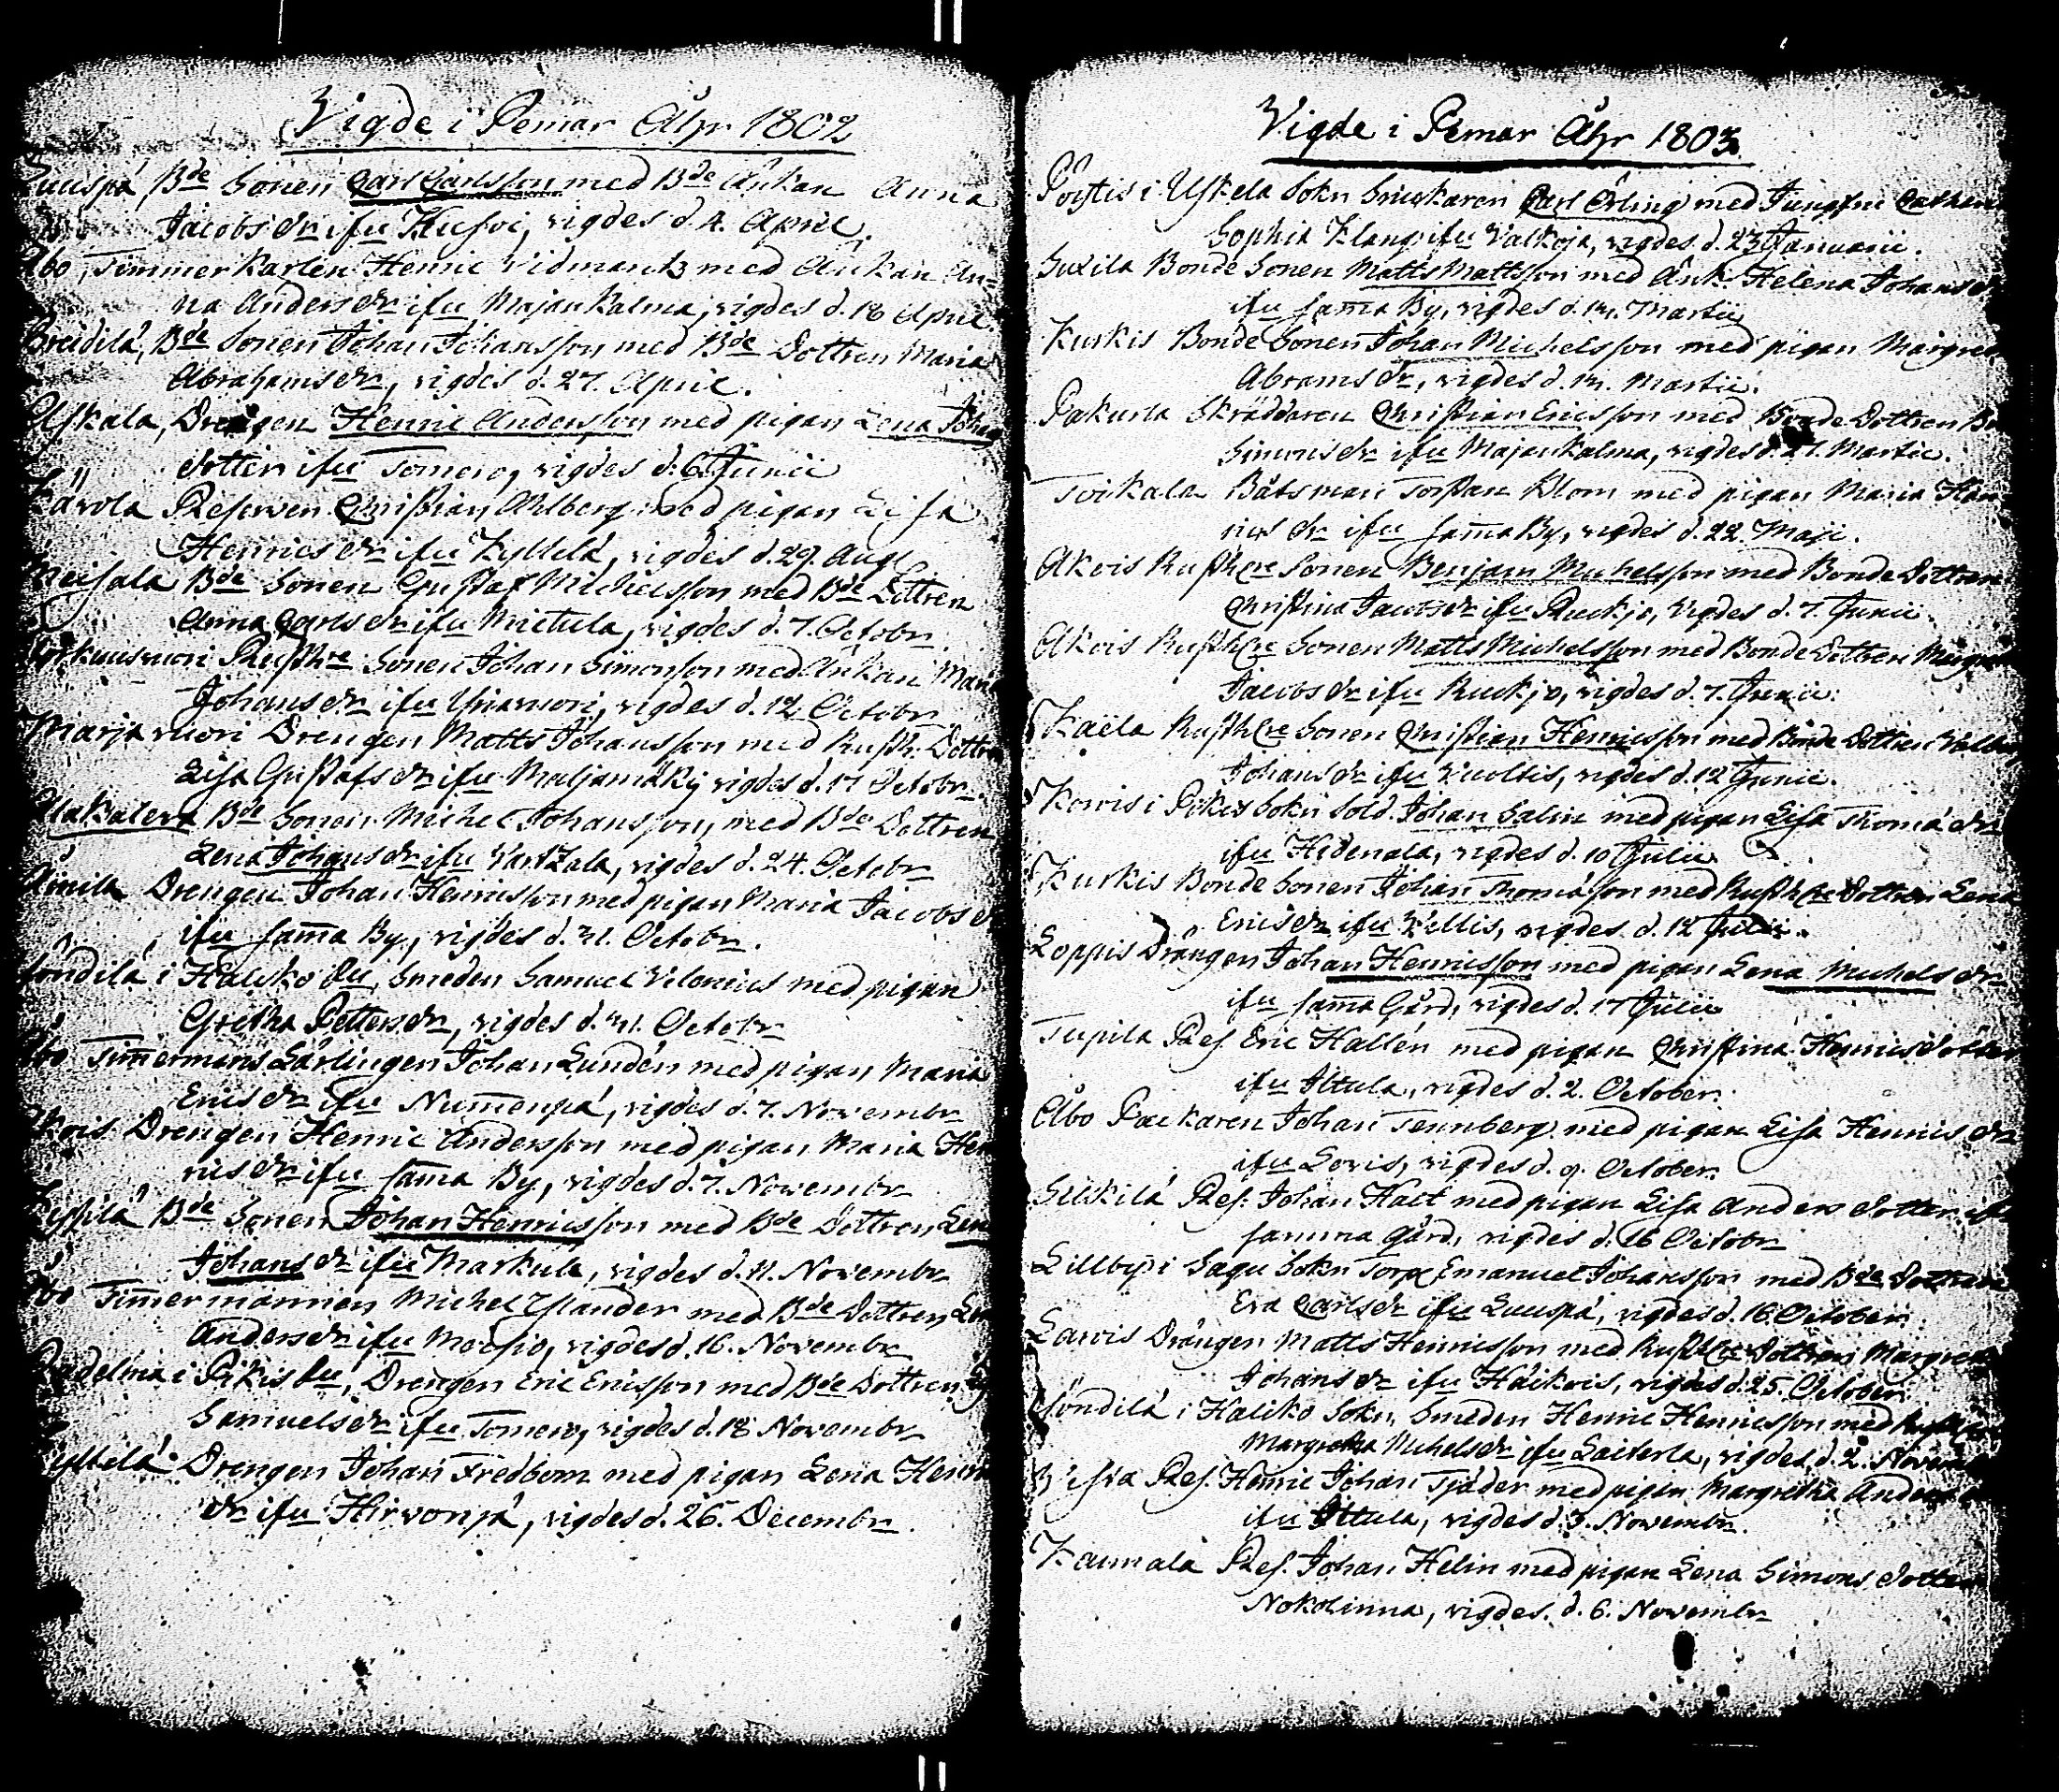 Vigde i Pemar Åhr 1802
Bde Sonen Carl Carlsson med Bde Änkan Anna
Jacobs dr ifrn vigdes d. 4. April.
Åbo, Timmerkarlen Henric Vidmantz med Änkan An-
na Anders dr ifrn Majankalma, vigdes d. 18 April.
Preidilä, Bde Sonen Johan Johansson med Bde Dottren Maria
Abrahams dr, vigdes d. 27. April.
Uskala, Drengen Henric Andersson med pigan Lena Johans
dotter ifrn Tomero, vigdes d. 6. Junii
Christian Ahlberg med pigan Lisa
Henrics dr ifrn Kyttelä, vigdes d. 29. Aug.
Meisala Bde Sonen Gustaf Michelsson med Bde Dottren
Anna Carls dr ifrn Mietula, vigdes d. 7. Octobr
Rusthre Sonen Johan Simonsson med Änkan Maria
Johans dr ifrn vigdes d. 12. Octobr
Marjavuori Drengen Matts Johansson med Rusth. Dottren
Lisa Gustafs dr ifrn Maljamäki vigdes d. 17 Octobr.
Bde Sonen Michel Johansson, med Bde Dottren
Lena Johans dr ifrn vigdes d. 24. Octobr
Drengen Johan Henricsson med pigan Maria Jacobs dr
ifrn samma By, vigdes d. 31. Octobr.
i Haliko Sn, Smeden Samuel Velonius med pigan
Gretha Petters dr, vigdes d. 31. Octobr
Åbo Timmermans Lärlingen Johan Lundén med pigan Maria
Erics dr ifrn Nummenpä, vigdes d. 7. Novembr
Akois Drengen Henric Andersson med pigan Maria Hen
rics dr ifrn samma By, vigdes d. 7. Novembr
Bde Sonen Johan Henricsson med Bde Dottren Lena
Johans dr ifrn Markula, vigdes d. 11. Novembr
Åbo Timmermannen Michel Ylander med Bde Dottren
Anders dr ifrn Moisio, vigdes d. 16. Novembr
i Pikis Sn, Drengen Eric Ericsson med Bde Dottren
Samuels dr ifrn Tomero, vigdes d. 18 Novembr
Kyttelä Drengen Johan Fredbom med pigan Lena Henrics
dr ifrn Hirvonpä, vigdes d. 26. Decembr.
Vigde i Pemar Åhr 1803
i Uskela Sokn Snickaren Carl Erling med Jungfru
Sophia Klang ifrn Valkoja, vigdes d. 23 Januarii.
Suxila Bonde Sonen Matts Mattsson med Änk. Helena Johans dr
ifrn samma By, vigdes d. 13. Martii
Kurkis Bonde Sonen Johan Michelsson med pigan Margreta
Abrams dr, vigdes d. 13. Martii.
Pakurla Skräddaren Christian Ericsson med Bonde Dottren
Simons dr ifrn Majankalma, vigdes d. 27. Martii.
Toikala Båtsman Torstan Blom med pigan Maria Hen
rics dr ifrn samma By, vigdes d. 22. Maji.
Akois Rusthre Sonen Benjam Michelsson med Bonde Dottren
Christina Jacobs dr ifrn Ruckjo, vigdes d. 7. Junii.
Akois Rusthre Sonen Matts Michelsson med Bonde Dottren Margreta
Jacobs dr ifrn Ruckjo, vigdes d. 7. Junii.
Kaela Rusthre Sonen Christian Henricsson med Bonde Dottren
Johans dr ifrn Vuoltis, vigdes d. 12 Junii.
Kowis i Pikis Sokn Sold. Johan Salin med pigan Lisa Thomæ dr
ifrn Hedenala, vigdes d. 10 Julii.
Kurkis Bonde Sonen Johan Thomasson med Rusthre Dottren Lena
Erics dr ifrn Killis, vigdes d. 12 Julii.
Loppis Drängen Johan Henricsson med pigan Lena Michels dr
ifrn samma Gård, vigdes d. 17 Julii
Tupila Ref Eric Hallén med pigan Christina Henrics dotter
ifrn Ittula, vigdes d. 2. October.
Åbo Packaren Johan Tennberg med pigan Lisa Henrics dr
ifrn Lovis, vigdes d. 9. October.
Ref. Johan Hact med pigan Lisa Anders dotter ifrn
samma gård, vigdes d. 16 Octobr
Lillby i Sagu Sokn Torp. Emanuel Johansson med Bde Dottren
Eva Carls dr ifrn Luuspä, vigdes d. 16. October.
Lawis Drängen Matts Henricsson med Rusthre Dottren Margreta
Johans dr ifrn Häikois, vigdes d. 25. October.
i Haliko Sokn, Smeden Henric Henricsson med
Margretha Michels dr ifrn Laiterla, vigdes d. 2. Novemb
Ref. Henric Johan Tjäder med pigan Margretha Anders
ifrn Ittula, vigdes d. 3. Novembr.
Kaumala Ref. Johan Helin med pigan Lena Simons Dotter
Nokolinna, vigdes d. 6. Novembr